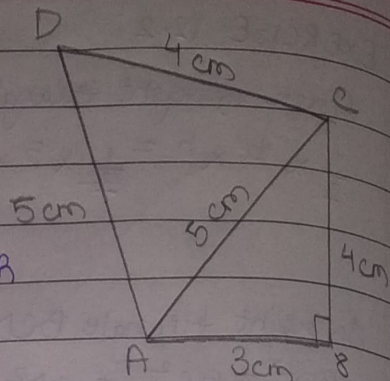 D
4 cm
C
5 cm
5 cm
4 cm
A
3 cm
B